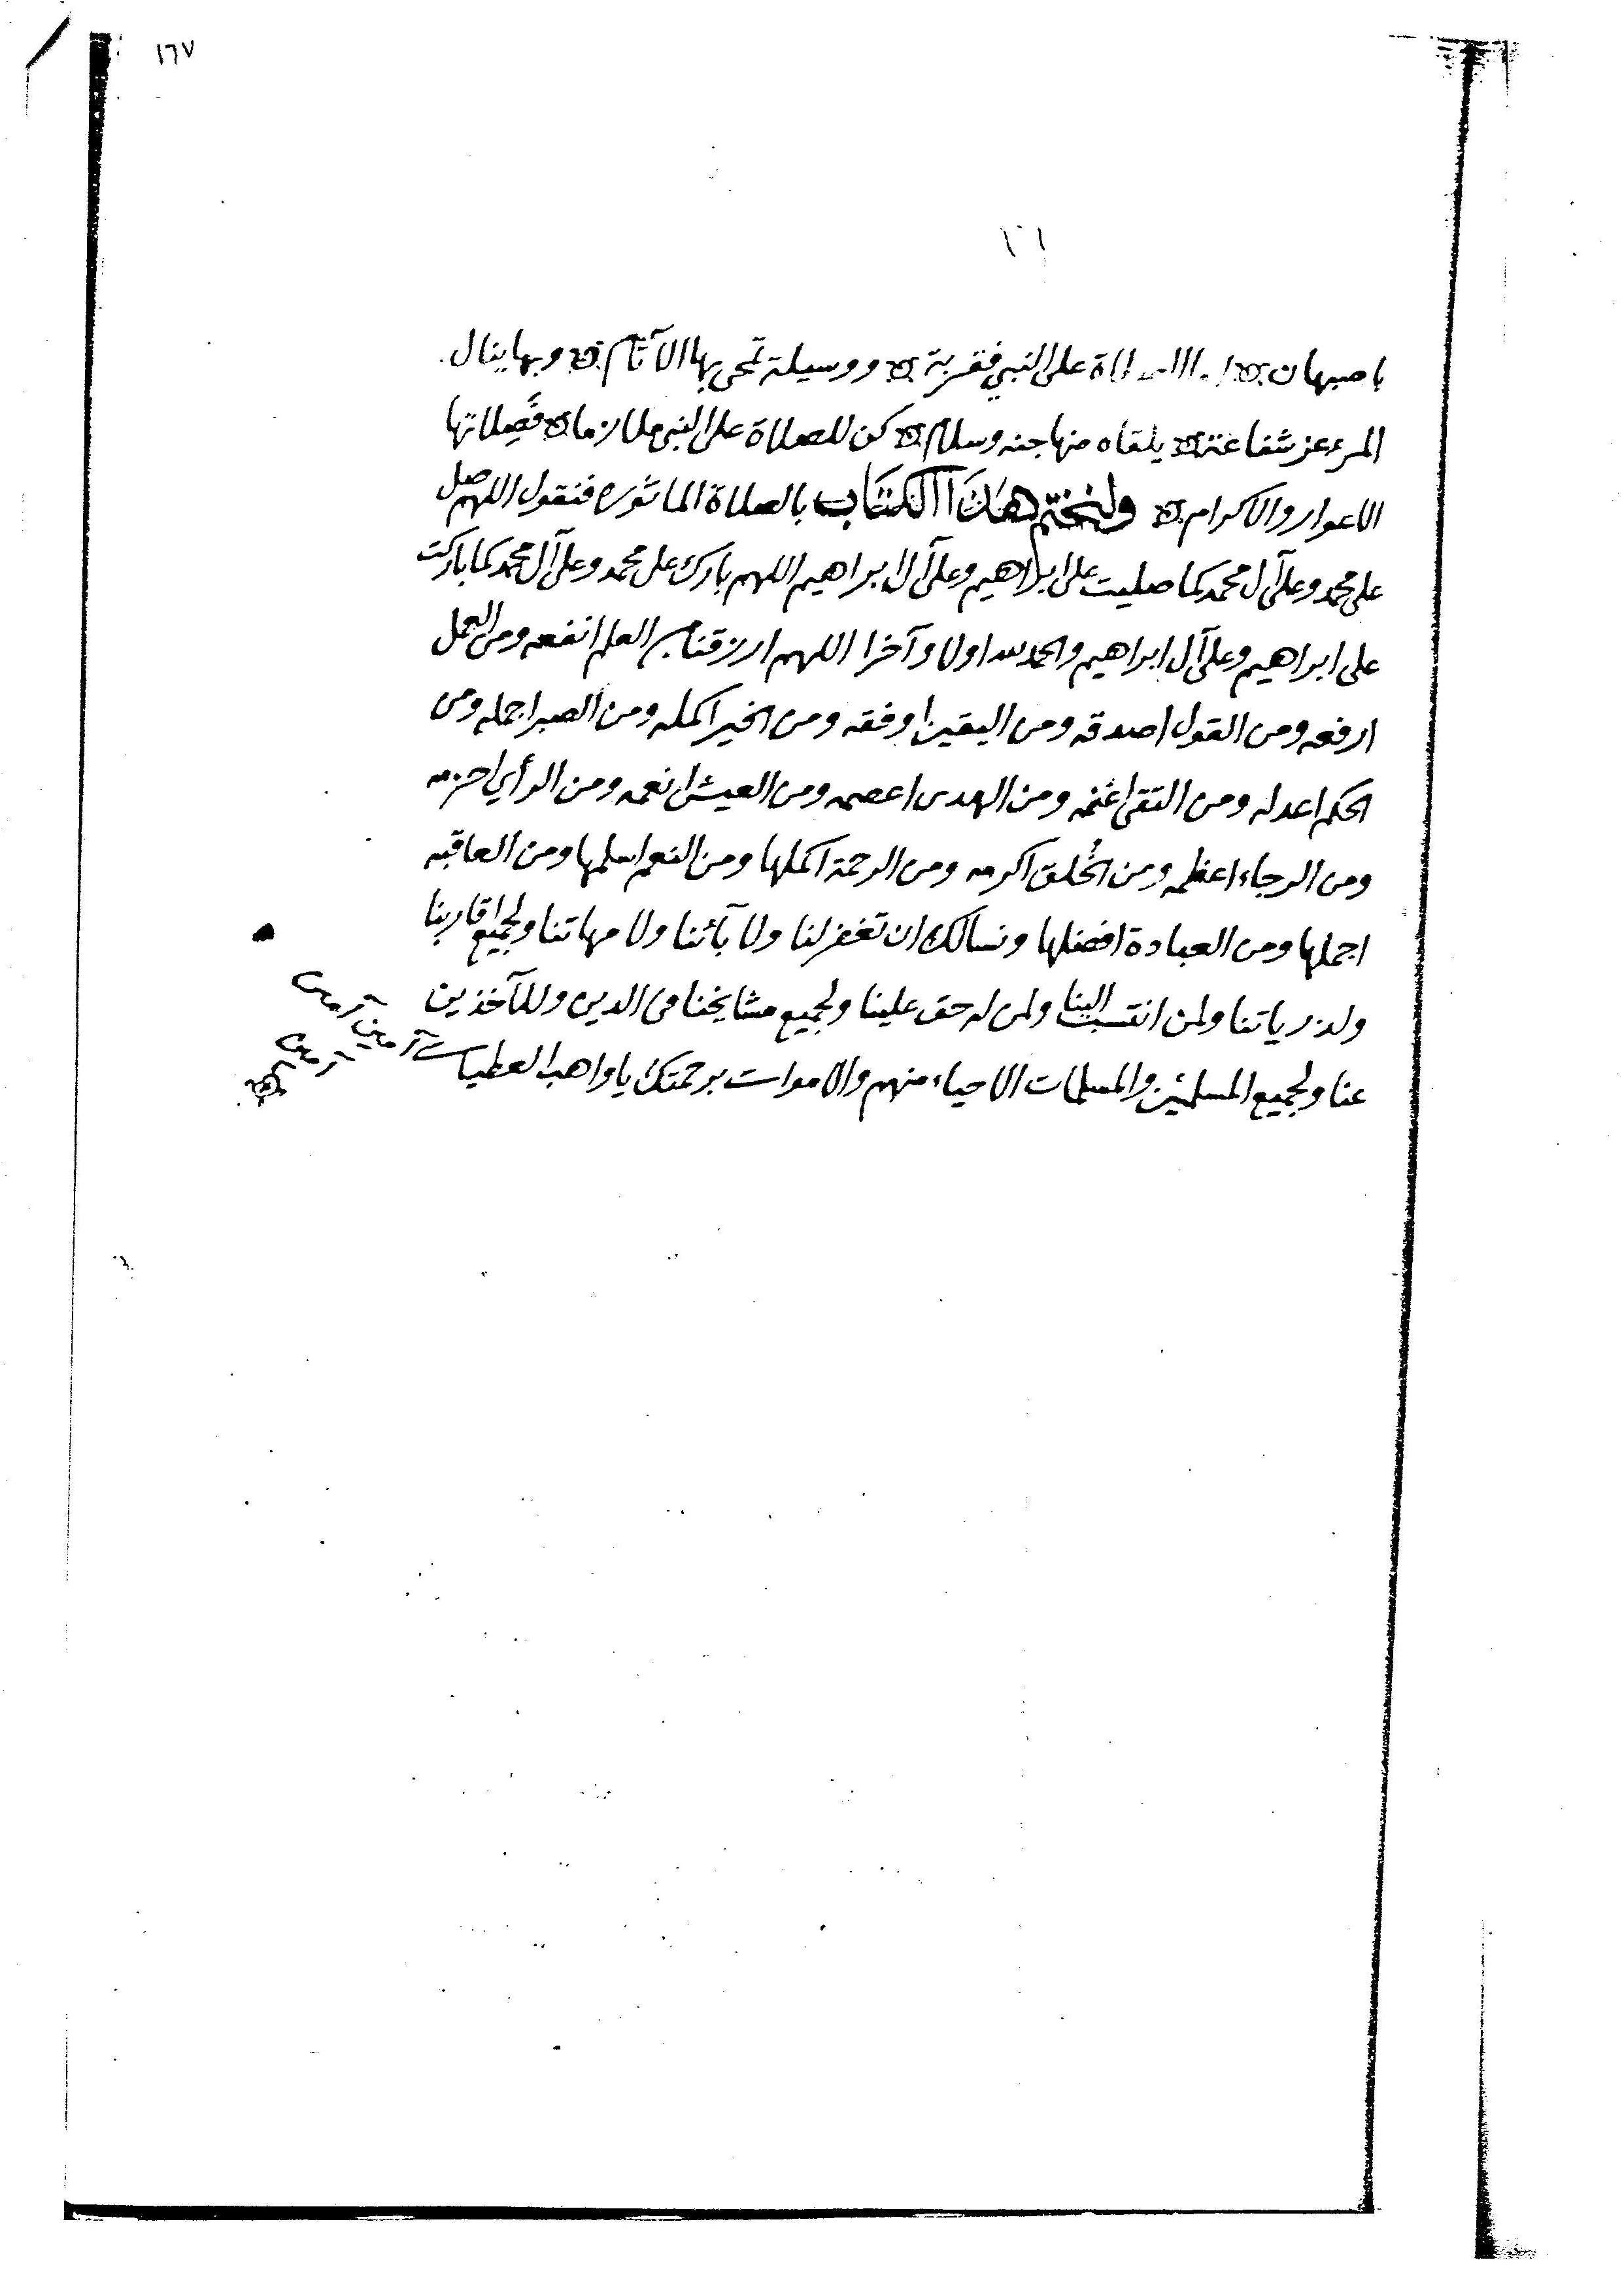 ١٦٧
باصبهان اما الصلاة على النبي فقربة ووسيلة تمحى بها الآثام وبها ينال
المرء عز شفاعة يلقاه منها جنه وسلام كن للصلاة على النبي ملازما فصلاتها
الاعوار والاكرام ولنختم هذا الكتاب بالصلاة الماثوره فنقول اللهم صل
على محمد وعلى آل محمد كما صليت على ابراهيم وعلى آل ابراهيم اللهم بارك على محمد وعلى آل محمد كما باركت
على ابراهيم وعلى آل ابراهيم والحمد لله اولا وآخرا اللهم ارزقنا من العلم انفعه ومن العمل
ارفعه ومن القول اصدقه ومن اليقين اوفقه ومن الخير اكمله ومن الصبر اجمله ومن
الحكم اعدله ومن التقى اغنمه ومن الهدى اعصمه ومن العيش انعمه ومن الرأي احزمه
ومن الرجاء اعظمه ومن الخُلق اكرمه ومن الرحمة اكملها ومن النعم اسلمها ومن العاقبه
اجملها ومن العبادة افضلها ونسالك ان تغفر لنا ولآبائنا ولامهاتنا ولجميع اقاربنا
ولذرياتنا ولمن انتسب الينا ولمن له حق علينا ولجميع مشايخنا في الدين وللآخذين
عنا ولجميع المسلمين والمسلمات الاحياء منهم والاموات برحمتك يا واهب العطيات آمين آمين
آمين